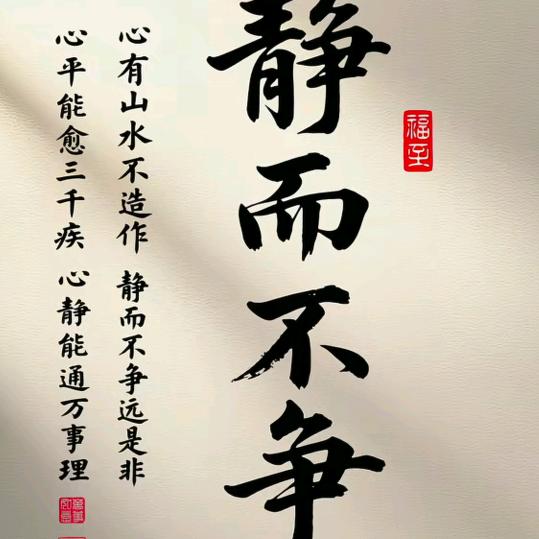 静而不争
福至
心有山水不造作 静而不争远是非
心平能愈三千疾 心静能通万事理